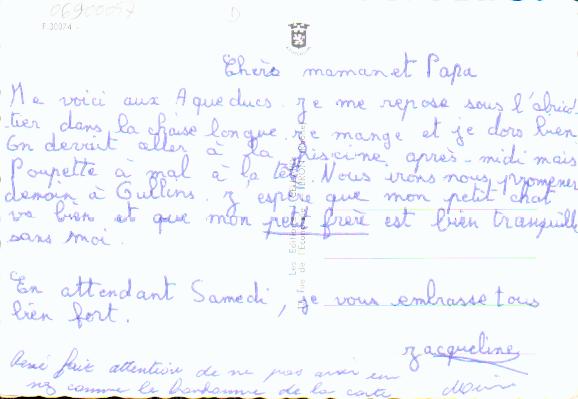 06900057
D
F.30974 -
Chère maman et Papa
Me voici aux Aqueducs. Je me repose sous l'abrico-
tier dans la chaise longue. Je mange et je dors bien
On devait aller à la piscine après-midi mais
Poupette à mal à la tête. Nous irons nous promener
demain à Oullins. J'espère que mon petit chat
va bien et que mon petit frère est bien tranquille
sans moi.
En attendant Samedi, je vous embrasse tous
bien fort.
Jacqueline
René fait attention de ne pas avoir un
nez comme le bonhomme de la carte